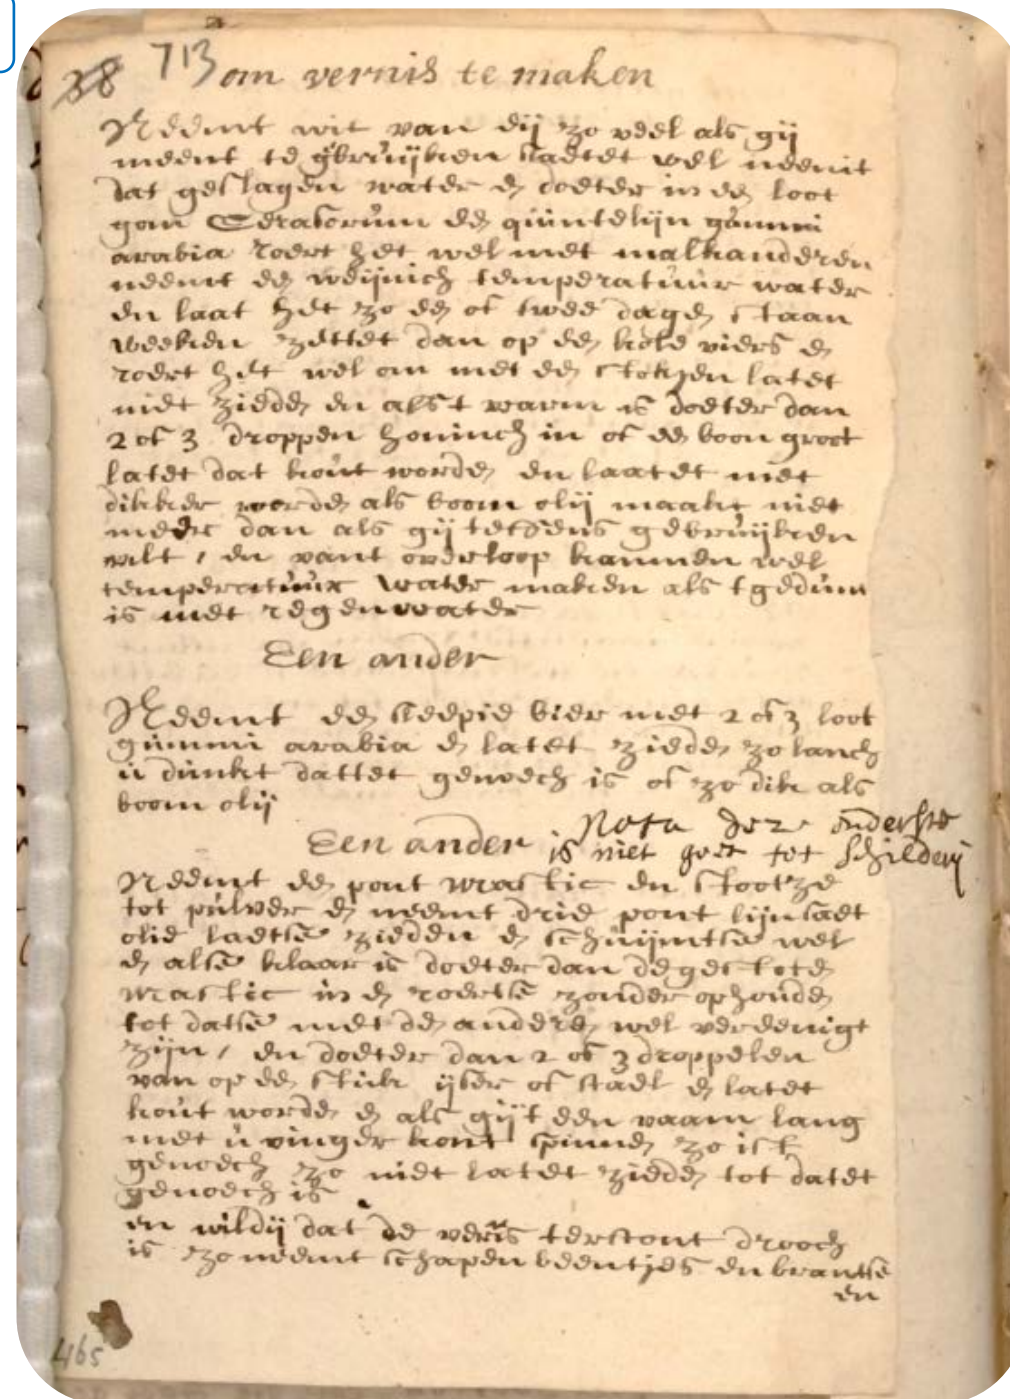 38 713 om vernis te maken
Neemt wit van eij zo veel als gij
meent te gebruijken slaetet wel neemt
dat geslagen water en doeter in een loot
gom een quintelijn gummi
arabia roert het wel met malkanderen
neemt een weijnich temperatuur water
en laat het zo een of twee dagen staan
weeken zettet dan op een kole viers en
roert het wel om met een stokjen latet
niet zieden en alst warm is doeter dan
2 of 3 droppen honinch in of een boon groot
latet dat kout worden en laatet niet
dikker worden als boom olij maakt niet
meer dan als gij tetsens gebruijken
wilt, en vant overloop kannen wel
temperatuur water maken als tgedunt
is met regenwater
Een ander
Neemt een bier met 2 of 3 loot
gummi arabia en latet zieden zo lanch
u dunkt dattet genoech is of zo dik als
boom olij
Een ander Nota deze onderste
is niet goet tot schilderij
Neemt een pont mastic en stootze
tot pulver en neemt drie pont lijnsaet
olie laetse zieden en schuijmtse wel
en alse klaar is doeter dan de gestoten
mastic in en roertse zonder ophouden
tot datse met den anderen wel vereenigt
zijn, en doeter dan 2 of 3 droppelen
van op een stuk ijser of stael en latet
kout worden en als gijt een vaam lang
met u vinger kont spinnen zo ist
genoech zo niet latet zieden tot datet
genoech is
en wildij dat de vernis terstont drooch
is zo neemt schapen beentjes en brantse
en
465